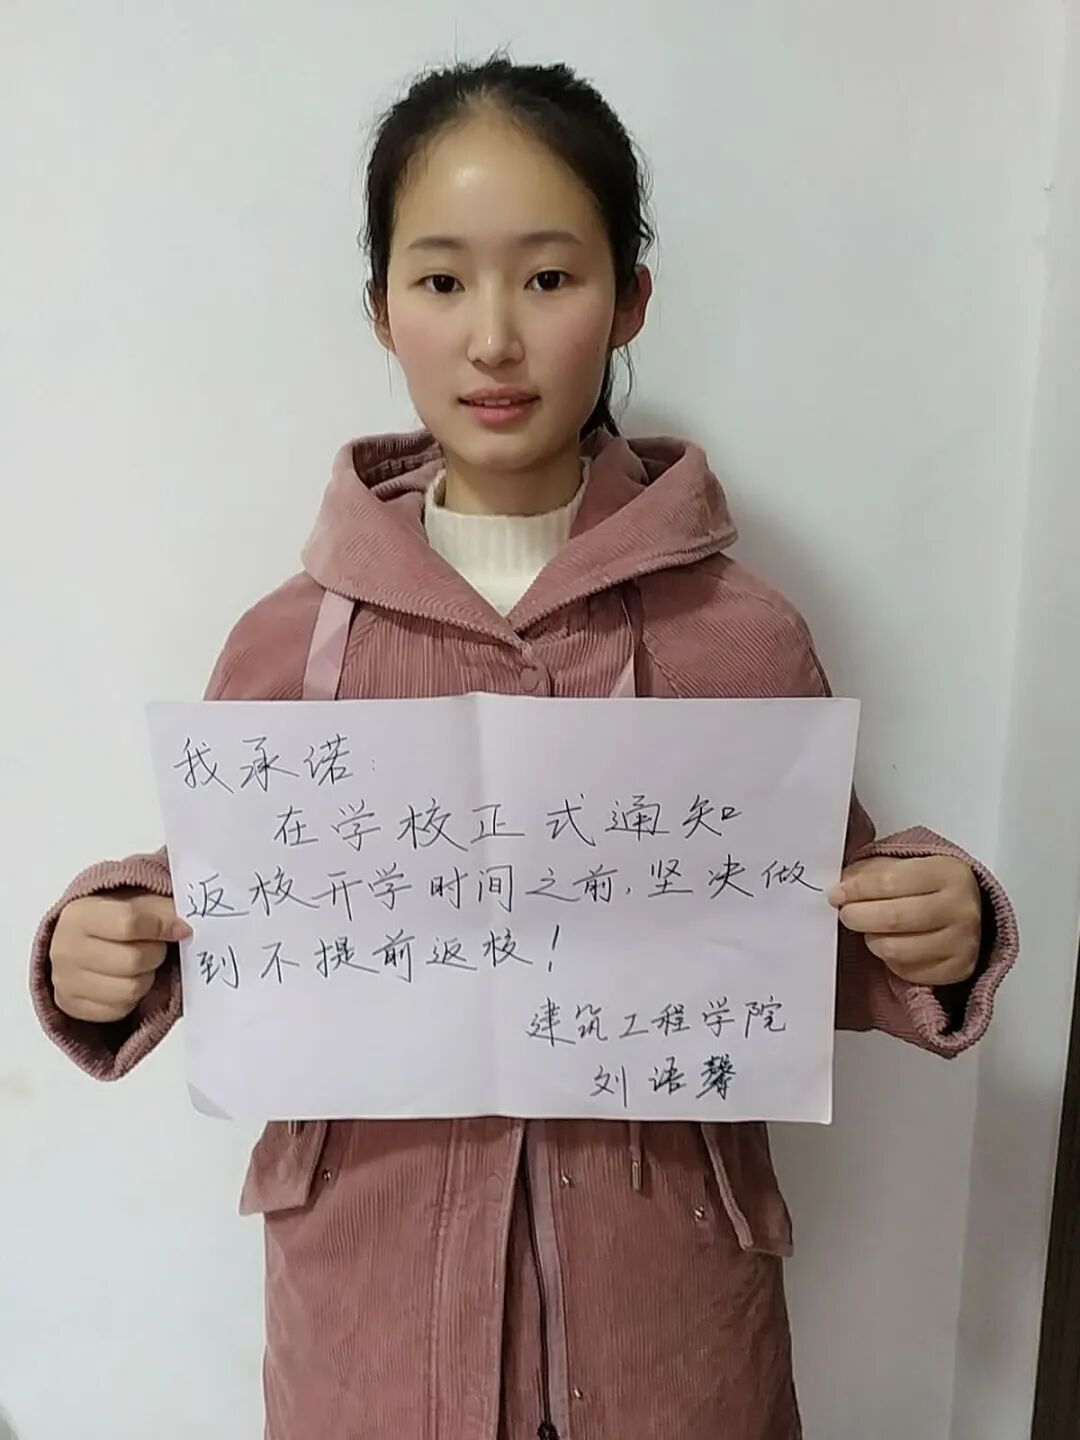 我承诺：
在学校正式通知
返校开学时间之前，坚决做
到不提前返校！
建筑工程学院
刘语馨